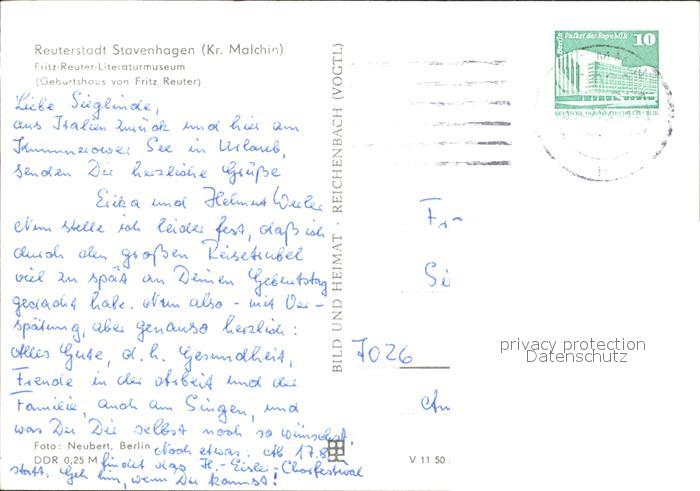 Reuterstadt Stavenhagen (Kr. Malchin)
Fritz-Reuter-Literaturmuseum
(Geburtshaus von Fritz Reuter)
Liebe Sieglinde,
aus Italien zurück und hier am
Kummerower See in Urlaub,
senden Dir herzliche Grüße
Erika und Helmut
Nun stelle ich leider fest, daß ich
durch den großen Reisetrubel
viel zu spät an Deinen Geburtstag
gedacht habe. Nun also - mit Ver-
spätung, aber genauso herzlich:
Alles Gute, d.h. Gesundheit,
Freude in der Arbeit und der
Familie, auch am Singen, und
was Du Dir selbst noch so wünschst.
Foto: Neubert, Berlin
Noch etwas. Ab 17.8.
DDR 0,25 M
findet das H.-Eisler-Chorfestival
statt. Geh hin, wenn Du kannst!
BILD UND HEIMAT · REICHENBACH (VOGTL)
V 11 50
Berlin Palast der Republik
10
DEUTSCHE DEMOKRATISCHE REPUBLIK
Fr
Si
7026
privacy protection
Datenschutz